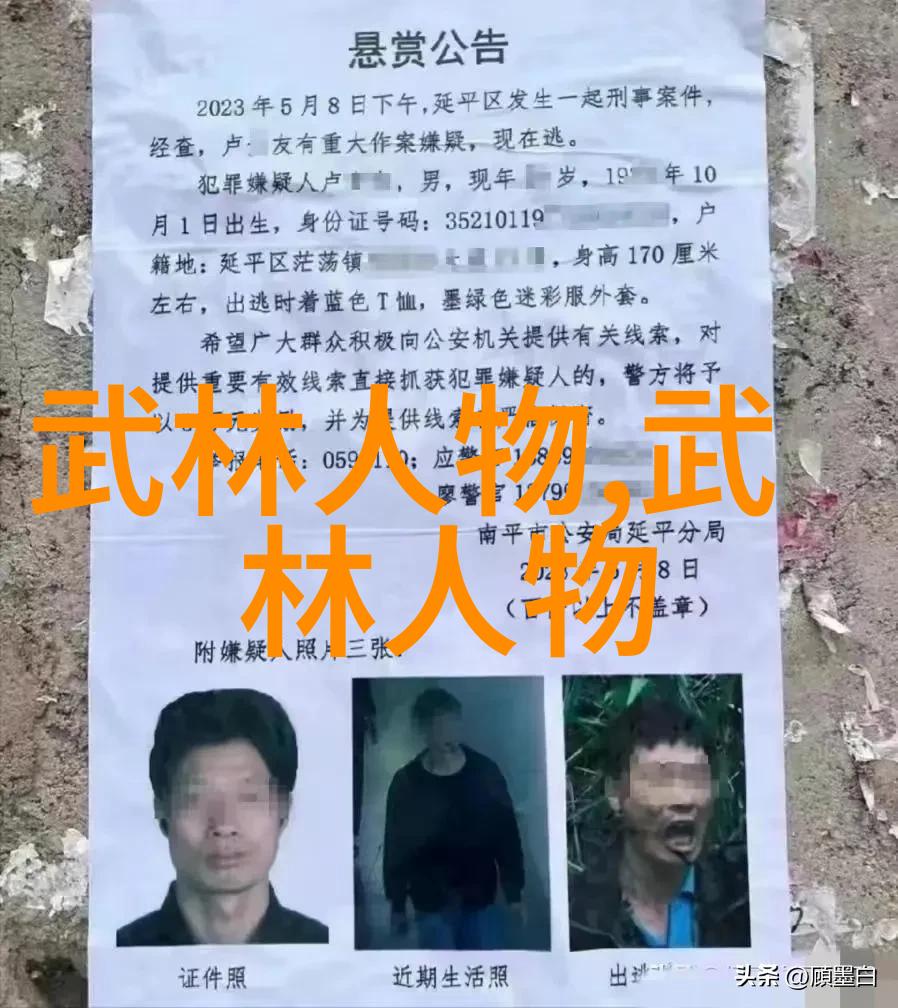 悬赏公告
2023年5月8日下午，延平区发生一起刑事案件，
经查，卢 友有重大作案嫌疑，现在逃。
犯罪嫌疑人卢 ，男，现年 岁，19 年10
月1日出生，身份证号码：35210119 ，户
籍地：延平区茫荡镇 ，身高170厘米
左右，出逃时着蓝色T恤，墨绿色迷彩服外套。
希望广大群众积极向公安机关提供有关线索，对
提供重要有效线索直接抓获犯罪嫌疑人的，警方将予
以 元 ，并为提供线索 。
武林人物,武
林人物
：059 110；应警
廖警官
南平市公安局延平分局
8日
（百 以上不盖章）
附嫌疑人照片三张：
证件照
近期生活照
出逃
头条 @顾墨白